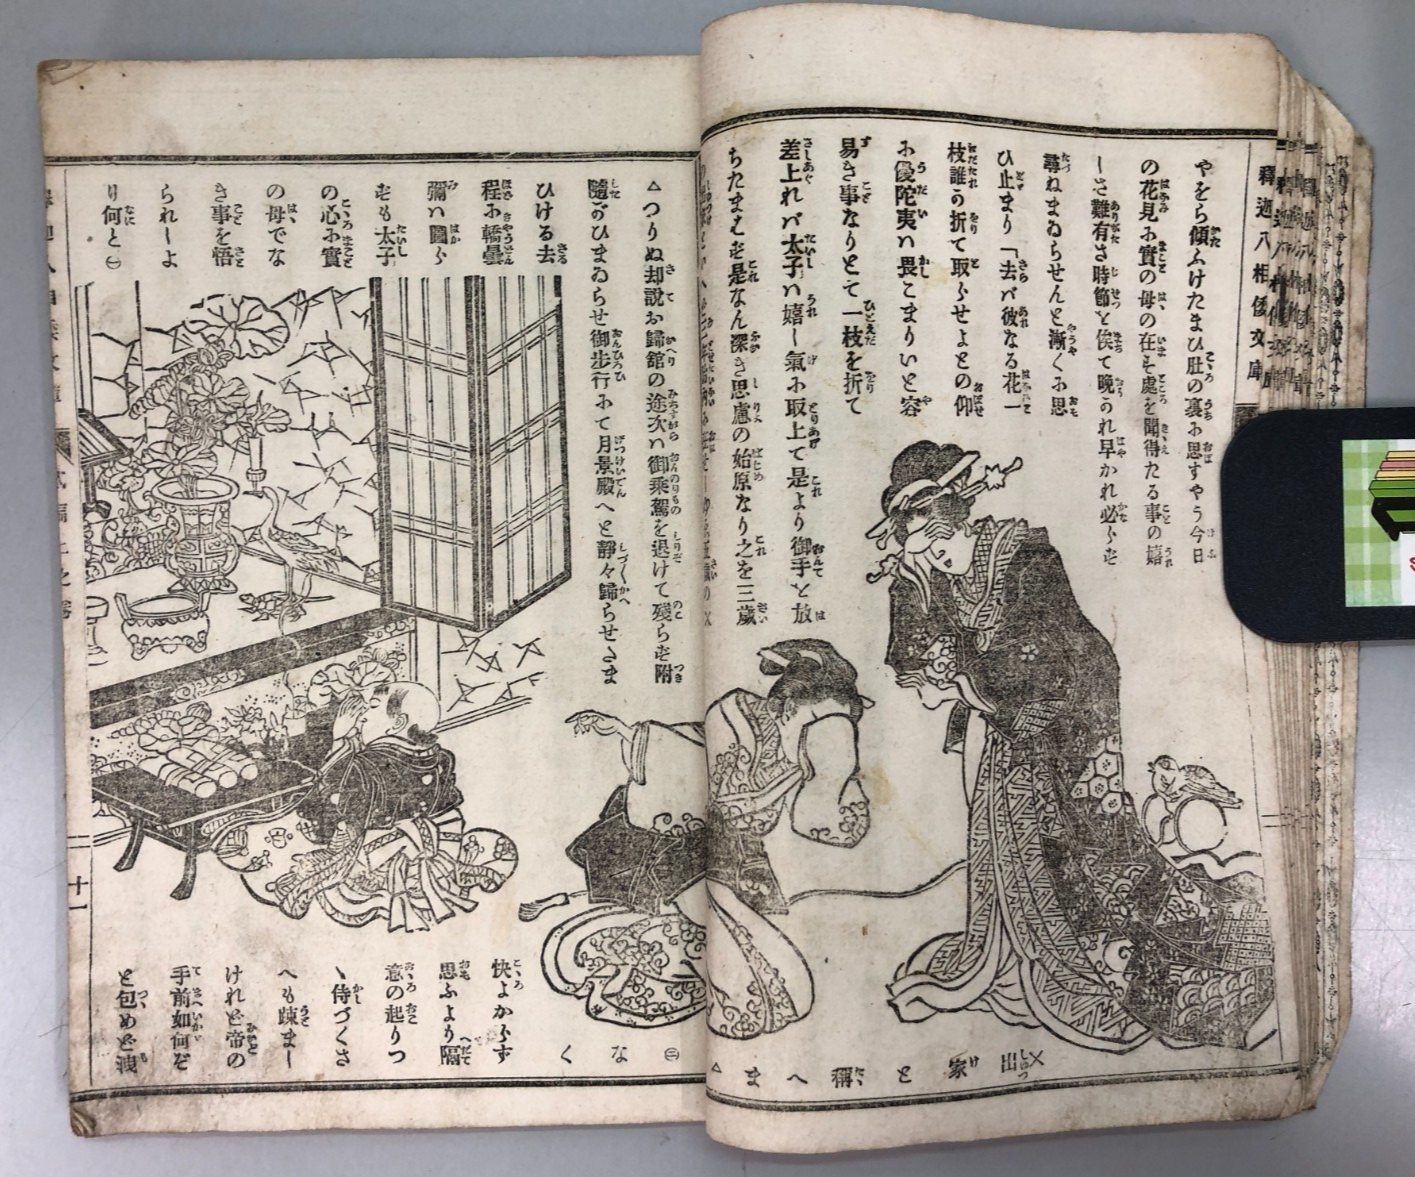 釋迦八相倭文庫
やをら傾ふけたまひ肚の裏ふ思すやう今日
の花見ふ實の母の在す處を聞得たる事の嬉
しさ難有さ時節を俟て晩うれ早かれ必らず
尋ねまゐらせんと漸くふ思
ひ止まり「去バ彼なる花一
枝誰う折て取らせよとの仰
ふ優陀夷ハ畏こまりいと容
易き事なりとて一枝を折て
差上れバ太子ハ嬉し氣ふ取上て是より御手を放
ちたまはず是なん深き思慮の始原なり之を三歳
×出家と稱へま△
△つりぬ却説お歸館の途次ハ御乘駕を退けて殘らず附
隨がひまゐらせ御歩行にて月景殿へと靜々歸らせさま
ひける去
程ふ轎曇
彌ハ圖ら
ずも太子
の心ふ實
の母でな
き事を悟
られしよ
り何と㊀
㊁なく
快よからず
思ふより隔
意の起りつ
ヽ侍づくさ
へも疎まし
けれど帝の
手前如何ぞ
と包めど洩
十一